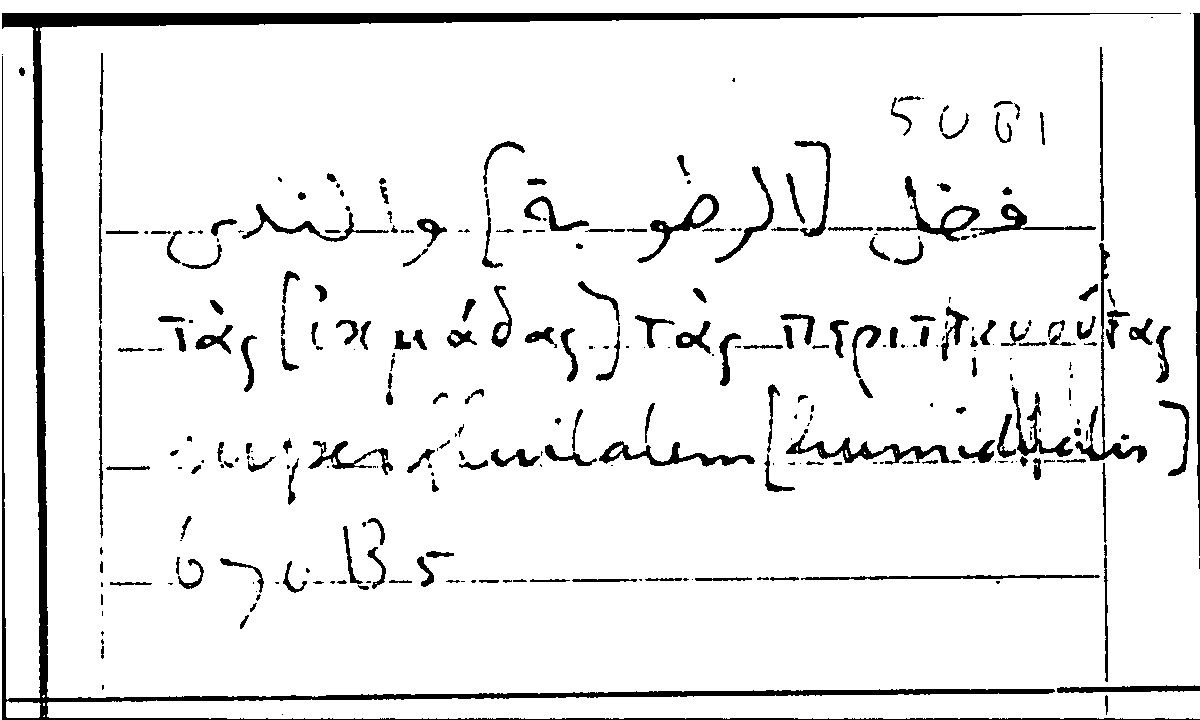 50 B1
فضل [الرطوبة] والندى
τὰς [ἰκμάδας] τὰς περιττευούσας
superfluitatem [humiditatis]
670 B 5